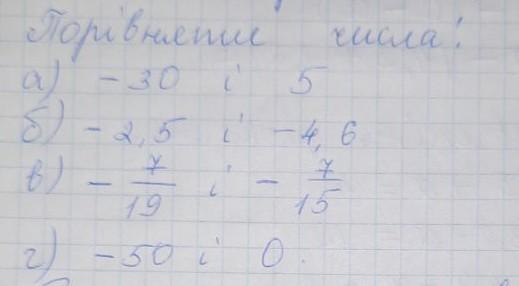 Порівняти числа:
а) -30 і 5
б) -2,5 і -4,6
в) - 7/19 і - 7/15
г) -50 і 0.